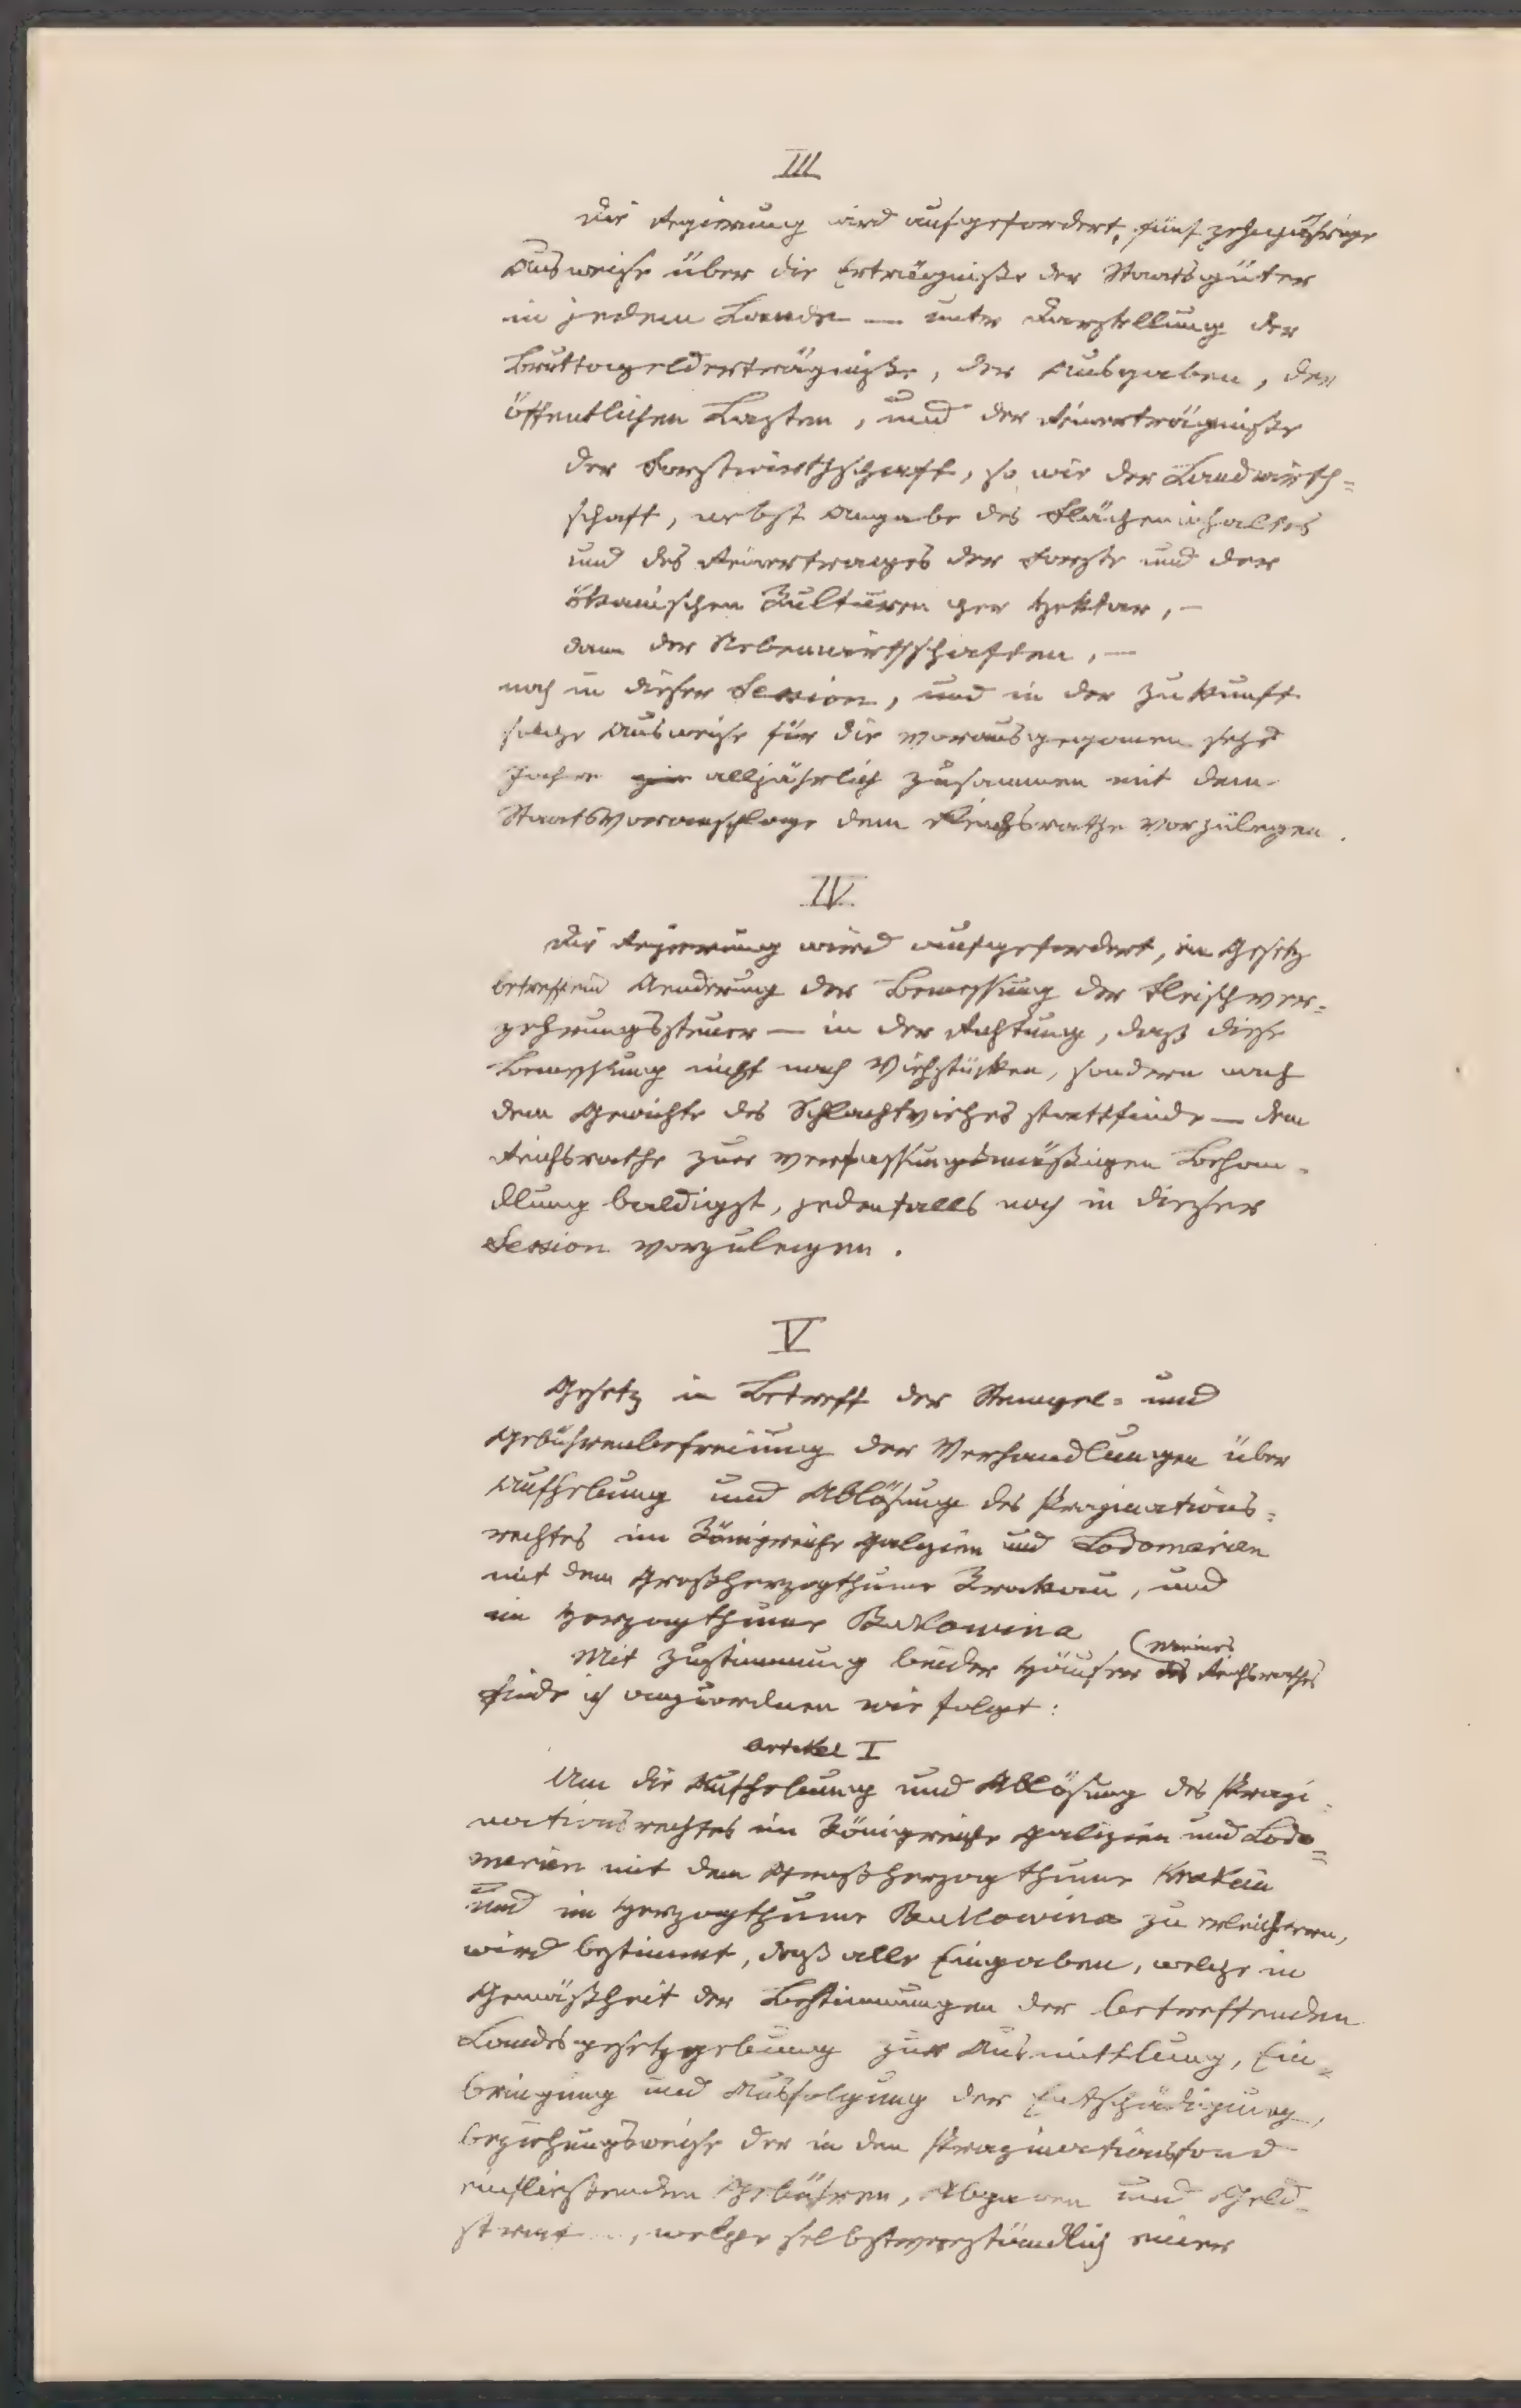 III
Die Regierung wird aufgefordert, fünf zehnjährige
Ausweise über die Erträgniße der Staatsgüter
in jedem Lande — unter Darstellung der
Bruttogelderträgniße, der Ausgaben, der
öffentlichen Lasten, und der Reinerträgniße
der Forstwirthschaft, so wie der Landwirth=
schaft, nebst Angabe des Flächeninhaltes
und des Reinertrages der Forste und der
ökonischen Kulturen per Hektar, —
dann der Nebenwirthschaften, —
noch in dieser Session, und in der Zukunft
solche Ausweise für die vorausgegangenen sechs
Jahre alljährlich zusammen mit dem
Staatsvoranschlage dem Reichsrathe vorzulegen.
IV.
Die Regierung wird aufgefordert, ein Gesetz
betreffend Aenderung der Bemessung der Fleischver=
zehrungssteuer — in der Richtung, daß diese
Bemessung nicht nach Viehstücken, sondern nach
dem Gewichte des Schlachtviehes stattfinde — dem
Reichsrathe zur verfassungsmäßigen Behan=
dlung baldigst, jedenfalls noch in dieser
Session vorzulegen.
V
Gesetz in Betreff der Stempel= und
Gebührenbefreiung der Verhandlungen über
Aufhebung und Ablösung des Propinations=
rechtes im Königreiche Galizien und Lodomerien
mit dem Großherzogthume Krakau, und
im Herzogthume Bukowina
(meines
Mit Zustimmung beider Häuser des Reichsrathes
finde ich anzuordnen wie folgt:
Artikel I
Um die Aufhebung und Ablösung des Propi=
nationsrechtes im Königreiche Galizien und Lodo=
merien mit dem Großherzogthume Krakau
und im Herzogthume Bukowina zu erleichtern,
wird bestimmt, daß alle Eingaben, welche in
Gemäßheit der Bestimmungen der betreffenden
Landesgesetzgebung zur Ausmittlung, Ein=
bringung und Ausfolgung der Entschädigung,
beziehungsweise der in den Propinationsfond
einfließenden Gebühren, Abgaben und Geld=
, welche selbstverständlich einer